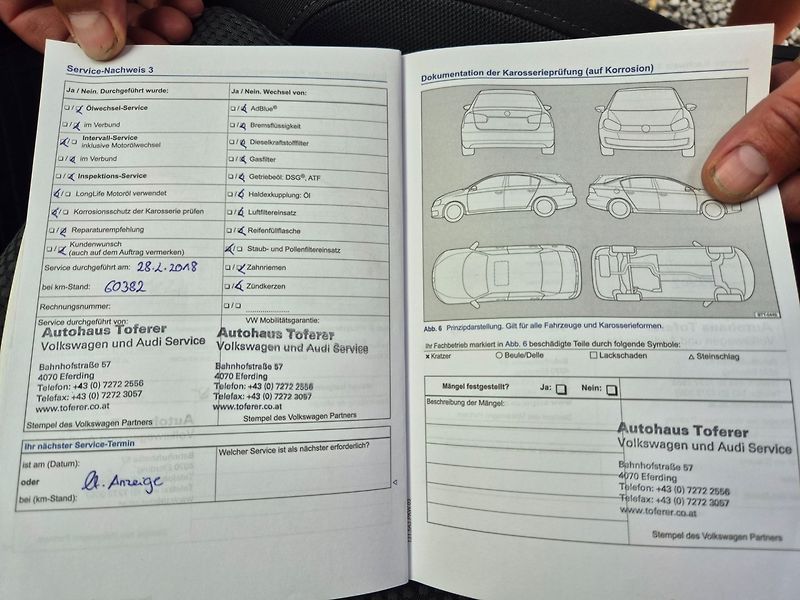 Service-Nachweis 3
Ja / Nein. Durchgeführt wurde:
Ölwechsel-Service
im Verbund
Intervall-Service
inklusive Motorölwechsel
im Verbund
Inspektions-Service
LongLife Motoröl verwendet
Korrosionsschutz der Karosserie prüfen
Reparaturempfehlung
Kundenwunsch
(auch auf dem Auftrag vermerken)
Service durchgeführt am: 28.2.2018
bei km-Stand: 60382
Rechnungsnummer:
Service durchgeführt von:
Autohaus Toferer
Volkswagen und Audi Service
Bahnhofstraße 57
4070 Eferding
Telefon: +43 (0) 7272 2556
Telefax: +43 (0) 7272 3057
www.toferer.co.at
Stempel des Volkswagen Partners
Ja / Nein. Wechsel von:
AdBlue®
Bremsflüssigkeit
Dieselkraftstofffilter
Gasfilter
Getriebeöl: DSG®, ATF
Haldexkupplung: Öl
Luftfiltereinsatz
Reifenfüllflasche
Staub- und Pollenfiltereinsatz
Zahnriemen
Zündkerzen
VW Mobilitätsgarantie:
Autohaus Toferer
Volkswagen und Audi Service
Bahnhofstraße 57
4070 Eferding
Telefon: +43 (0) 7272 2556
Telefax: +43 (0) 7272 3057
www.toferer.co.at
Stempel des Volkswagen Partners
Ihr nächster Service-Termin
ist am (Datum):
oder
bei (km-Stand):
lt. Anzeige
Welcher Service ist als nächster erforderlich?
Dokumentation der Karosserieprüfung (auf Korrosion)
Abb. 6 Prinzipdarstellung. Gilt für alle Fahrzeuge und Karosserieformen.
Ihr Fachbetrieb markiert in Abb. 6 beschädigte Teile durch folgende Symbole:
Kratzer
Beule/Delle
Lackschaden
Steinschlag
Mängel festgestellt? Ja: Nein:
Beschreibung der Mängel:
Autohaus Toferer
Volkswagen und Audi Service
Bahnhofstraße 57
4070 Eferding
Telefon: +43 (0) 7272 2556
Telefax: +43 (0) 7272 3057
www.toferer.co.at
Stempel des Volkswagen Partners